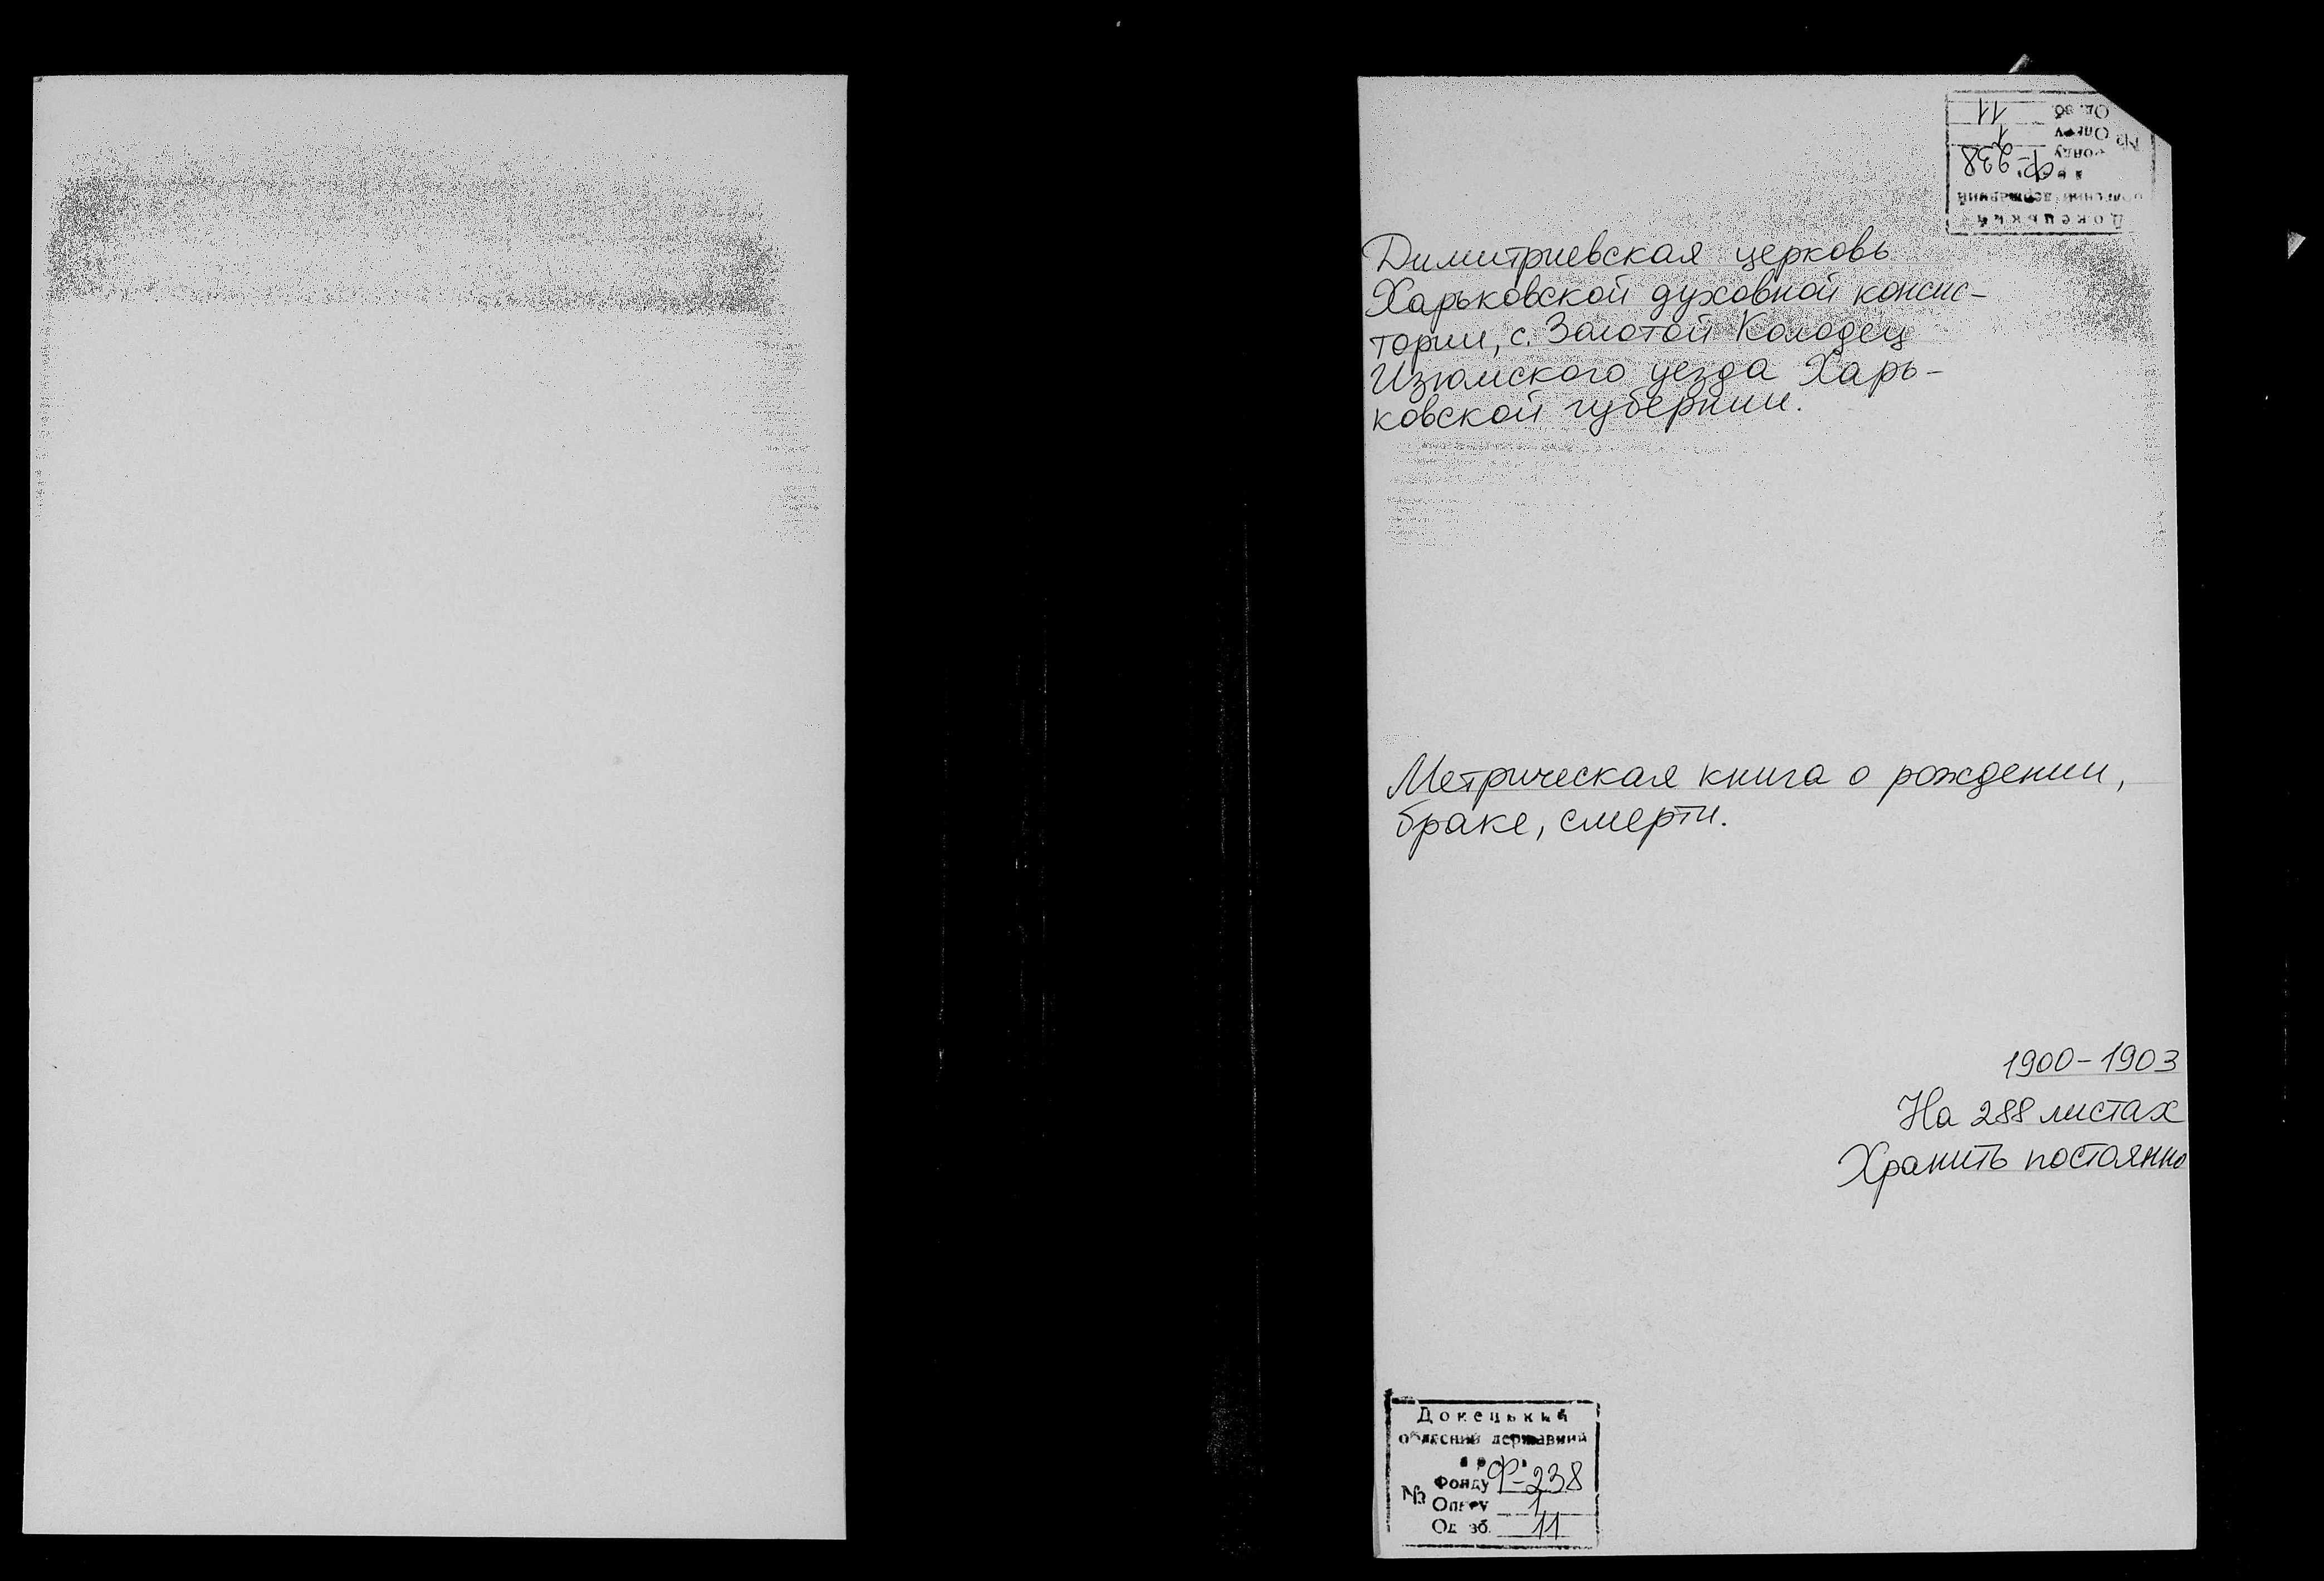 Димитриевская церковь
Харьковской духовной консис-
тории, с. Золотой Колодец
Изюмского уезда Харь-
ковской губернии.
Метрическая книга о рождении,
браке, смерти.
1900-1903
На 288 листах
Хранить постоянно
Донецький
обласний державний
архів
№ Фонду Ф-238
Опису 1
Од. зб. 11
Донецький
обласний державний
архів
Фонду Ф-238
№ Опису 1
Од зб. 11